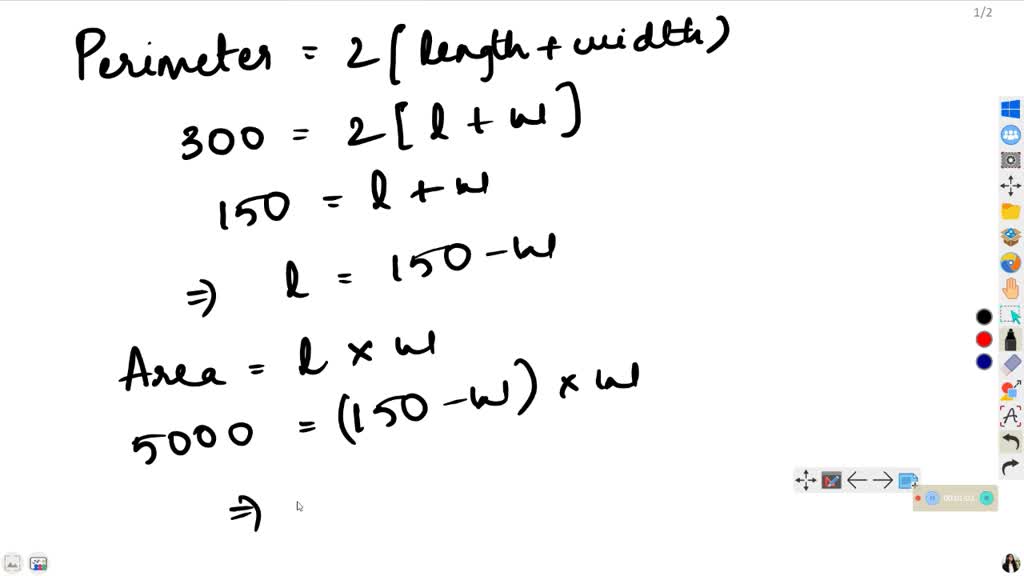 1/2
Perimeter = 2(length+width)
300 = 2[l + w]
150 = l + w
⇒ l = 150 - w
Area = l × w
5000 = (150 - w) × w
⇒